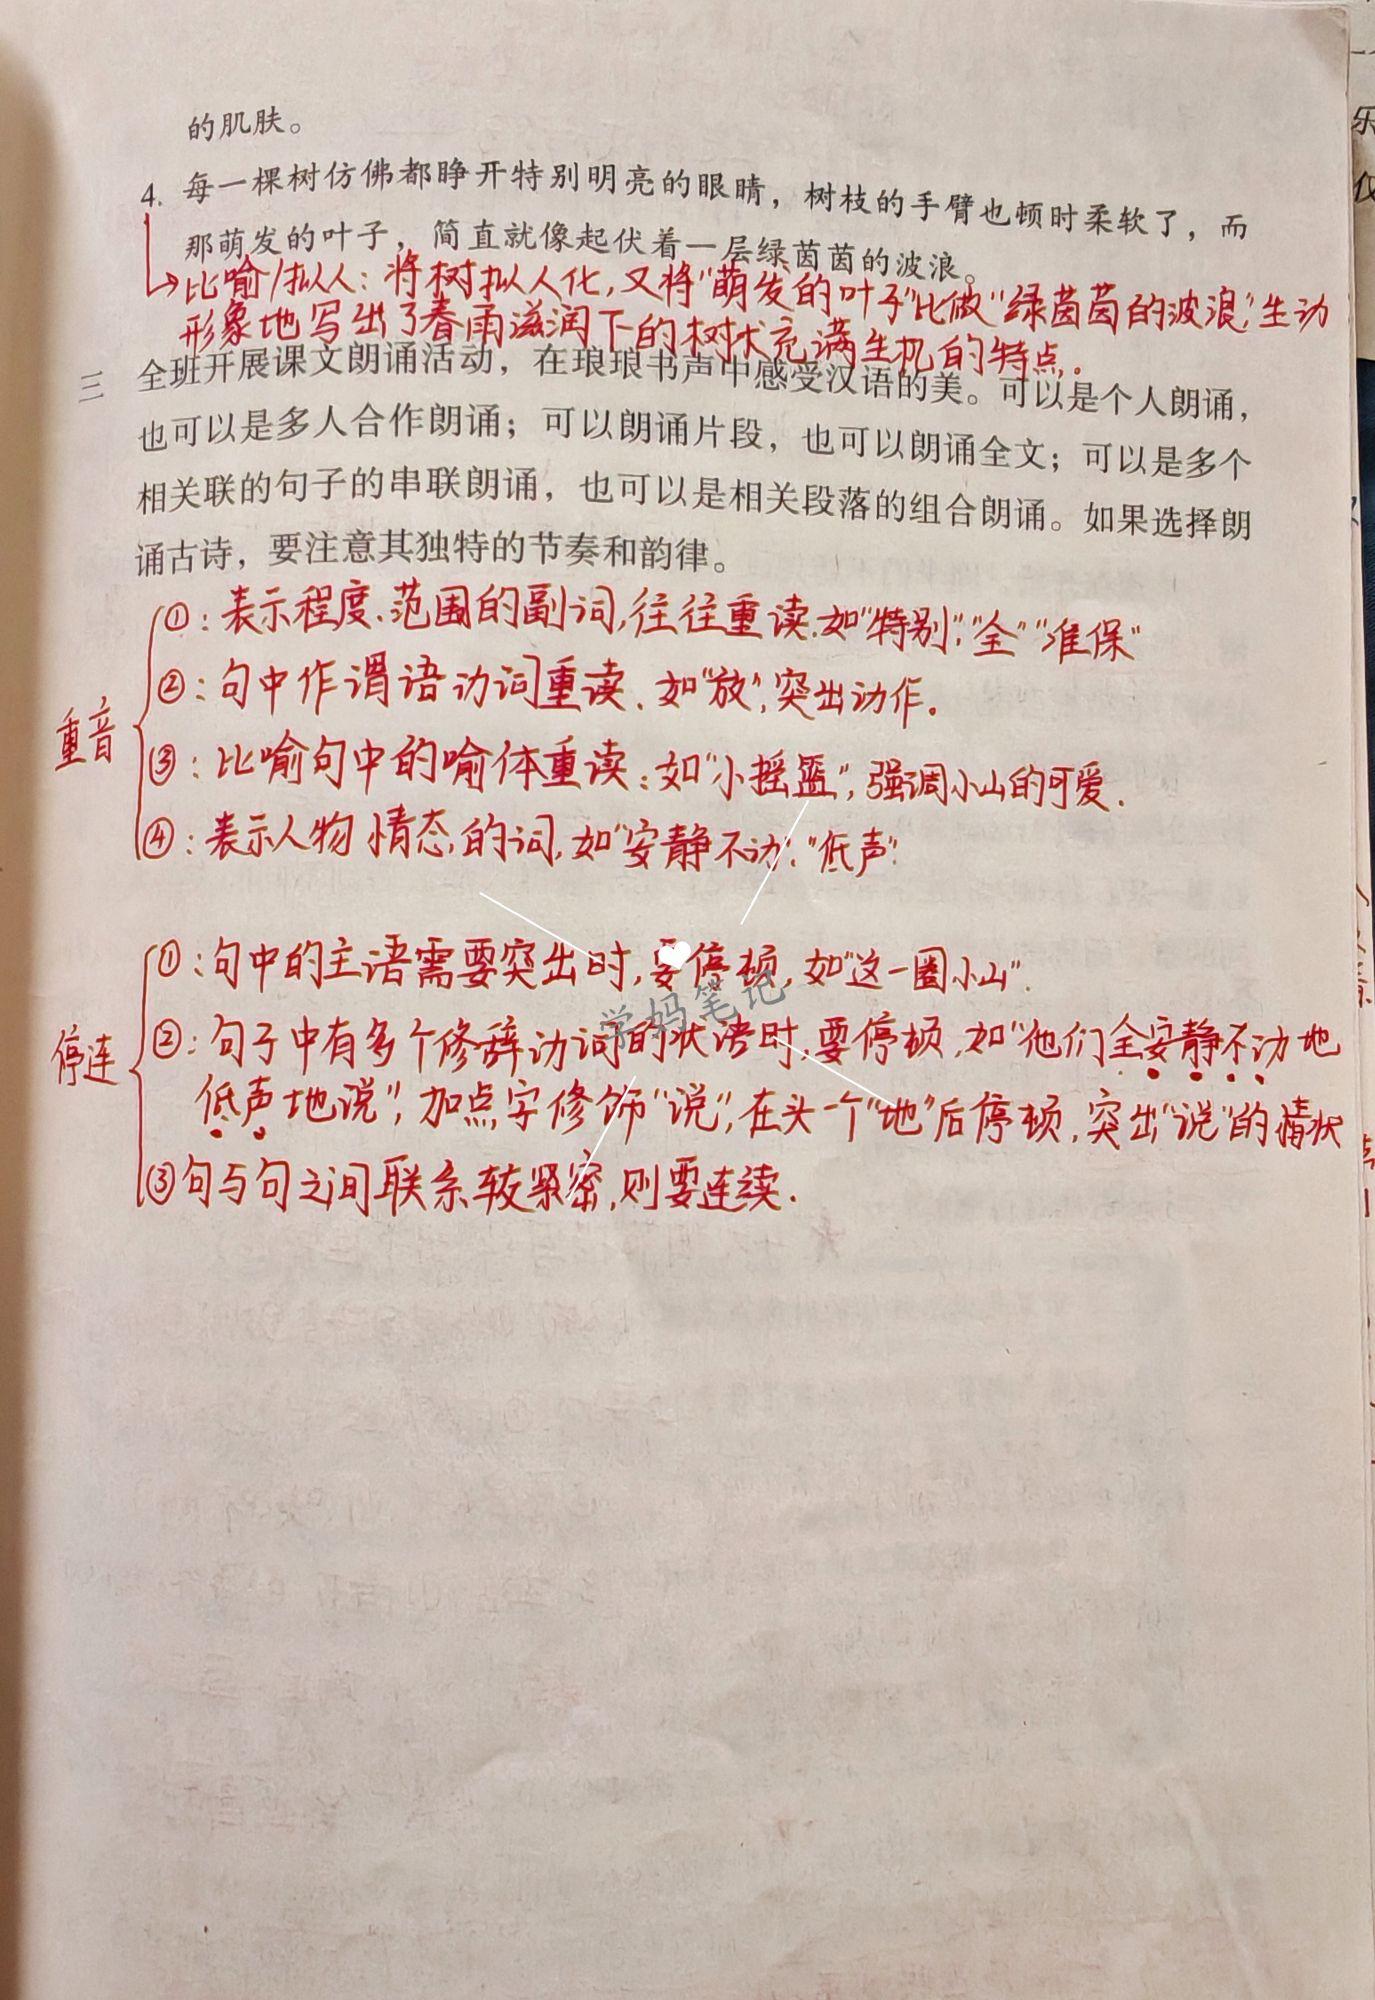 的肌肤。
4. 每一棵树仿佛都睁开特别明亮的眼睛，树枝的手臂也顿时柔软了，而
那萌发的叶子，简直就像起伏着一层绿茵茵的波浪。
比喻/拟人：将树拟人化，又将"萌发的叶子"比做"绿茵茵的波浪"，生动
形象地写出了春雨滋润下的树木充满生机的特点。
三 全班开展课文朗诵活动，在琅琅书声中感受汉语的美。可以是个人朗诵，
也可以是多人合作朗诵；可以朗诵片段，也可以朗诵全文；可以是多个
相关联的句子的串联朗诵，也可以是相关段落的组合朗诵。如果选择朗
诵古诗，要注意其独特的节奏和韵律。
重音
①：表示程度、范围的副词，往往重读。如"特别"，"全""准保"
②：句中作谓语动词重读，如"放"，突出动作。
③：比喻句中的喻体重读：如"小摇篮"，强调小山的可爱。
④：表示人物情态的词，如"安静不动"、"低声"
停连
①：句中的主语需要突出时，要停顿，如"这一圈小山"
②：句子中有多个修辞动词的状语时，要停顿，如"他们全安静不动地
低声地说"，加点字修饰"说"，在头一个"地"后停顿，突出"说"的情状
③句与句之间联系较紧密，则要连续。
学妈笔记
乐